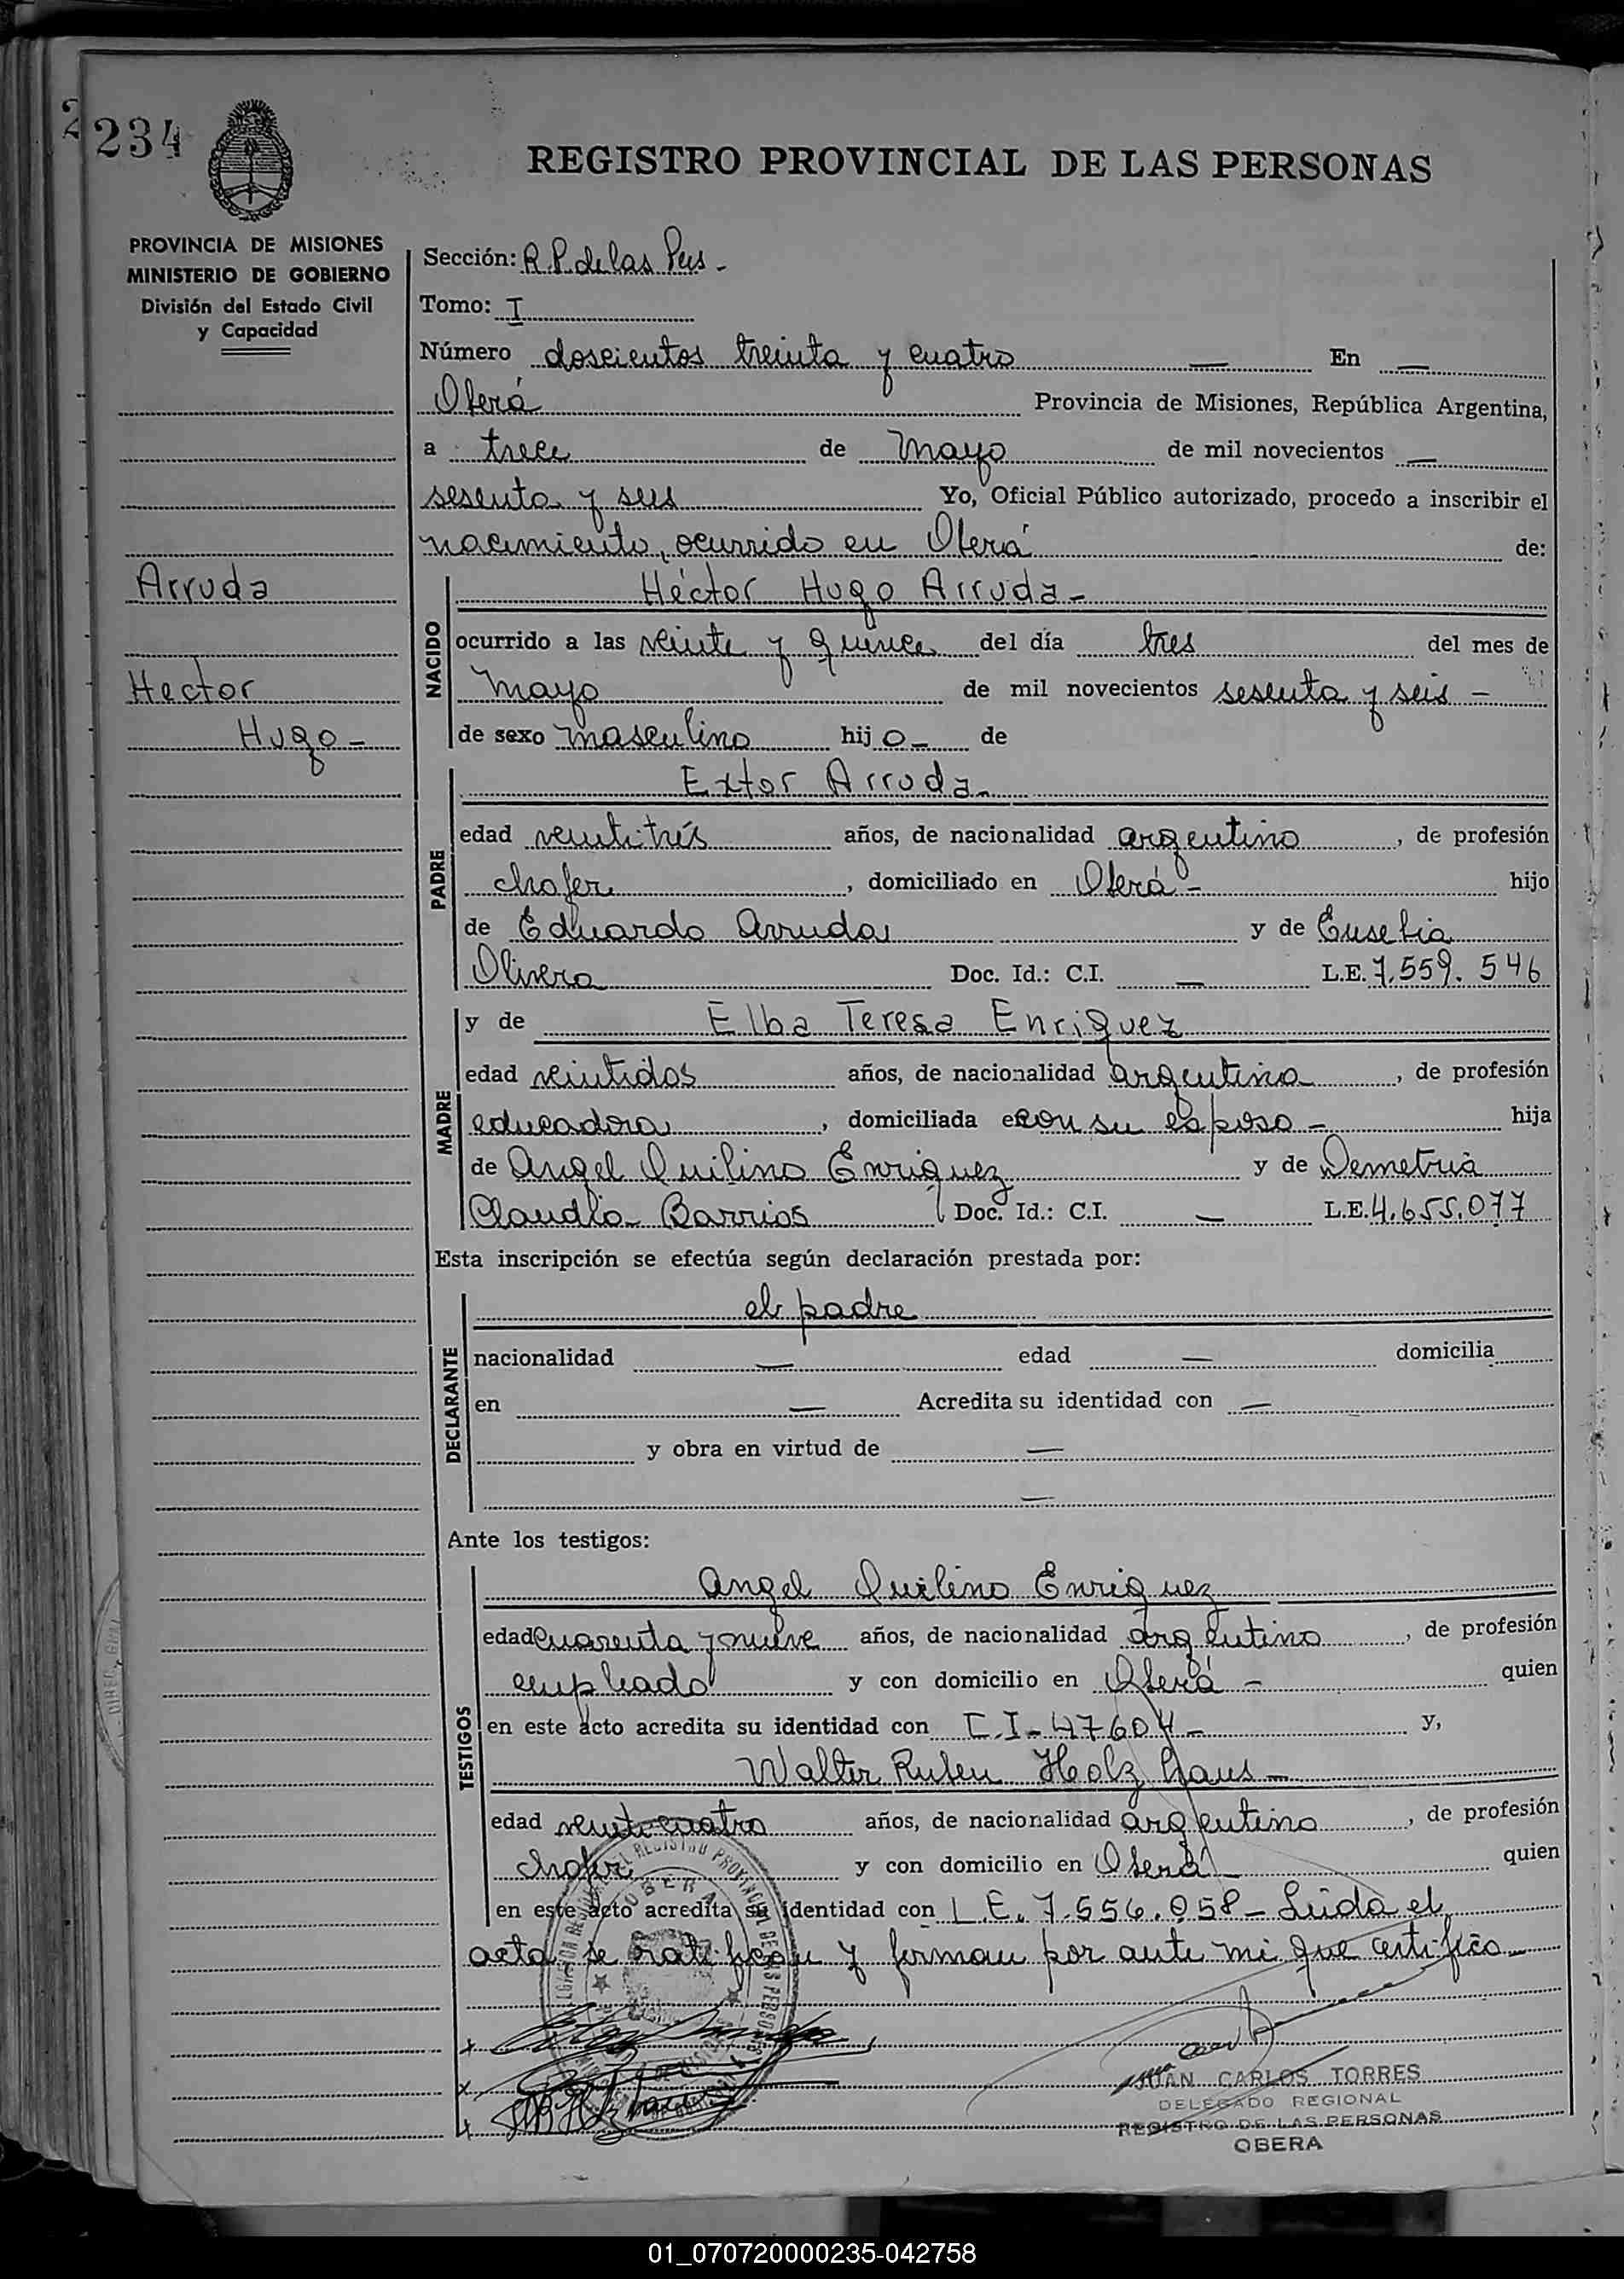 234
REGISTRO PROVINCIAL DE LAS PERSONAS
PROVINCIA DE MISIONES
MINISTERIO DE GOBIERNO
División del Estado Civil
y Capacidad
Sección: R.P. de las Pers -
Tomo: I
Número doscientos treinta y cuatro — En —
Oberá Provincia de Misiones, República Argentina,
a trece de Mayo de mil novecientos —
sesenta y seis Yo, Oficial Público autorizado, procedo a inscribir el
nacimiento, ocurrido en Oberá de:
Arruda
Hector
Hugo -
NACIDO
Héctor Hugo Arruda -
ocurrido a las veinte y quince del día tres del mes de
mayo de mil novecientos sesenta y seis -
de sexo masculino hijo - de
PADRE
Extor Arruda -
edad veintitrés años, de nacionalidad argentino, de profesión
chofer, domiciliado en Oberá - hijo
de Eduardo Arruda y de Eusebia
Olivera Doc. Id.: C.I. — L.E. 7.559.546
MADRE
y de Elba Teresa Enriquez
edad veintidos años, de nacionalidad argentina, de profesión
educadora, domiciliada e con su esposo - hija
de Angel Quilino Enriquez y de Demetria
Claudia Barrios Doc. Id.: C.I. — L.E. 4.655.077
Esta inscripción se efectúa según declaración prestada por:
DECLARANTE
el padre
nacionalidad — edad — domicilia
en — Acredita su identidad con —
y obra en virtud de —
—
Ante los testigos:
TESTIGOS
Angel Quilino Enriquez
edad cuarenta y nueve años, de nacionalidad argentino, de profesión
empleado y con domicilio en Oberá - quien
en este acto acredita su identidad con C.I - 47604 - y,
Walter Ruben Holzhaus -
edad veinticuatro años, de nacionalidad argentino, de profesión
chofer y con domicilio en Oberá quien
en este acto acredita su identidad con L.E. 7.556.058 - Leida el
acta se ratifican y firman por ante mi que certifico -
OBERA
JUAN CARLOS TORRES
DELEGADO REGIONAL
REGISTRO DE LAS PERSONAS
OBERA
01_070720000235-042758